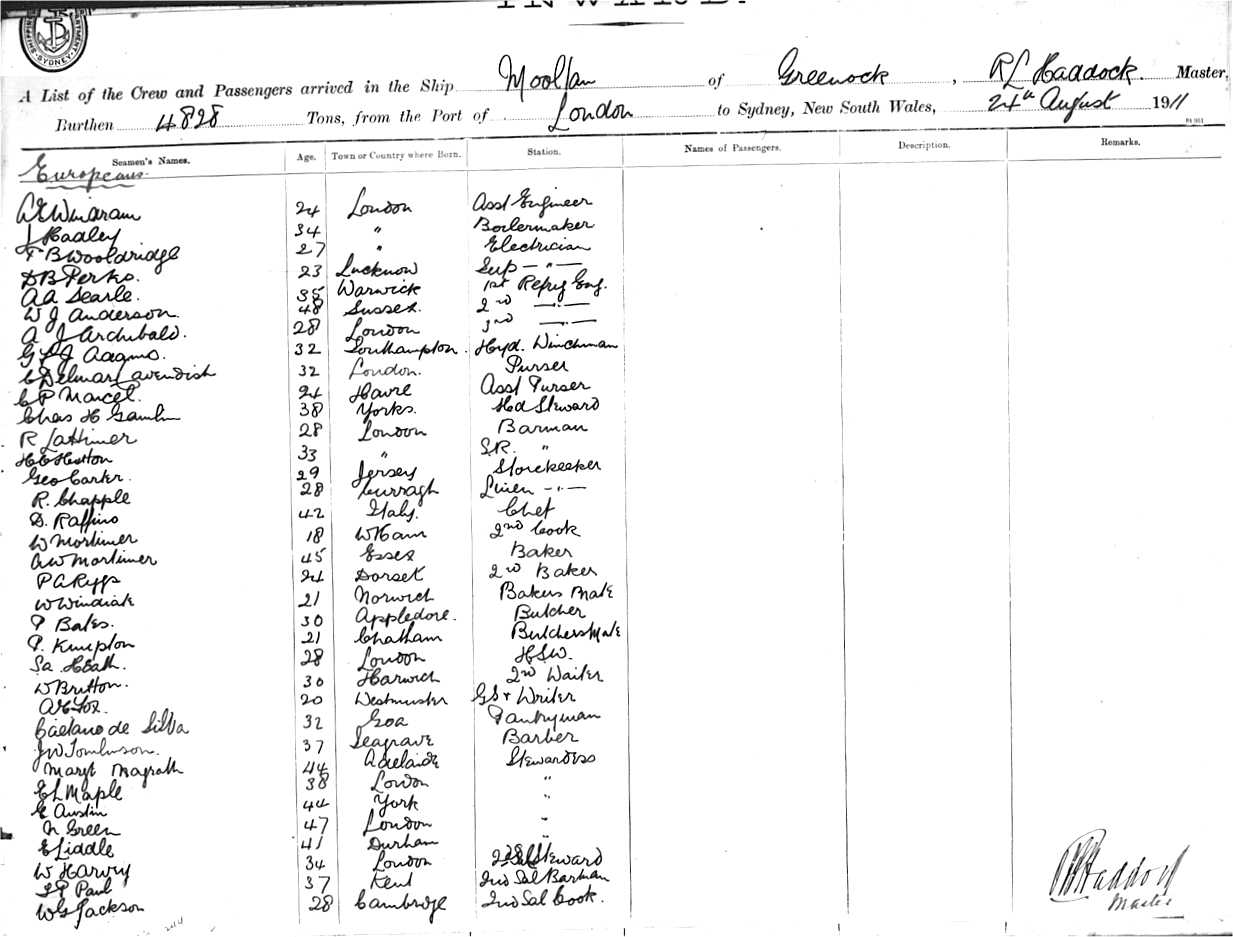 INWARD.
SHIPPING DEPARTMENT SYDNEY
A List of the Crew and Passengers arrived in the Ship Mooltan of Greenock, R L Haddock. Master,
Burthen 4828 Tons, from the Port of London to Sydney, New South Wales, 24th August 1911
Seamen's Names. Age. Town or Country where Born. Station. Names of Passengers. Description. Remarks.
Europeans
24 London Asst Engineer
J Hadley 34 " Boilermaker
F B Wooldridge 27 " Electrician
D B Perks. 23 Lucknow Sup — " —
A A Searle. 38 Warwick 1st Refrig Eng.
W J Anderson. 48 Sussex. 2nd — " —
A J Archibald. 28 London 3rd — " —
32 Southampton. Hyd. Winchman
C Delmar Cavendish 32 London. Purser
C P Marcel. 24 Havre Asst Purser
Chas H 38 Yorks. Hd Steward
R Lattimer 28 London Barman
33 " S.R. "
Geo Carter. 29 Jersey Storekeeper
R. Chapple 28 Curragh Linen - " -
D. Raffino 42 Italy. Chef
W Mortimer 18 W Ham 2nd Cook
A W Mortimer 45 Essex Baker
24 Dorset 2nd Baker
21 Norwich Bakers Mate
P Bates. 30 Appledore. Butcher
P. Kimpton 21 Chatham Butchers Mate
Sa Heath. 28 London H.S.W.
W Britton. 30 Harwich 2nd Waiter
A E Fox. 20 Westminster G S & Writer
Caetano de Silva 32 Goa Pantryman
J W Tomlinson. 37 Seagrave Barber
Margt Magrath 44 Adelaide Stewardess
E L Maple 38 London "
E Austin 44 York "
N Green 47 London "
E Liddle 41 Durham "
W Harvey 34 London 2nd Sal Steward
37 Kent 2nd Sal Barman
W G Jackson 28 Cambridge 2nd Sal Cook.
R L Haddock
Master